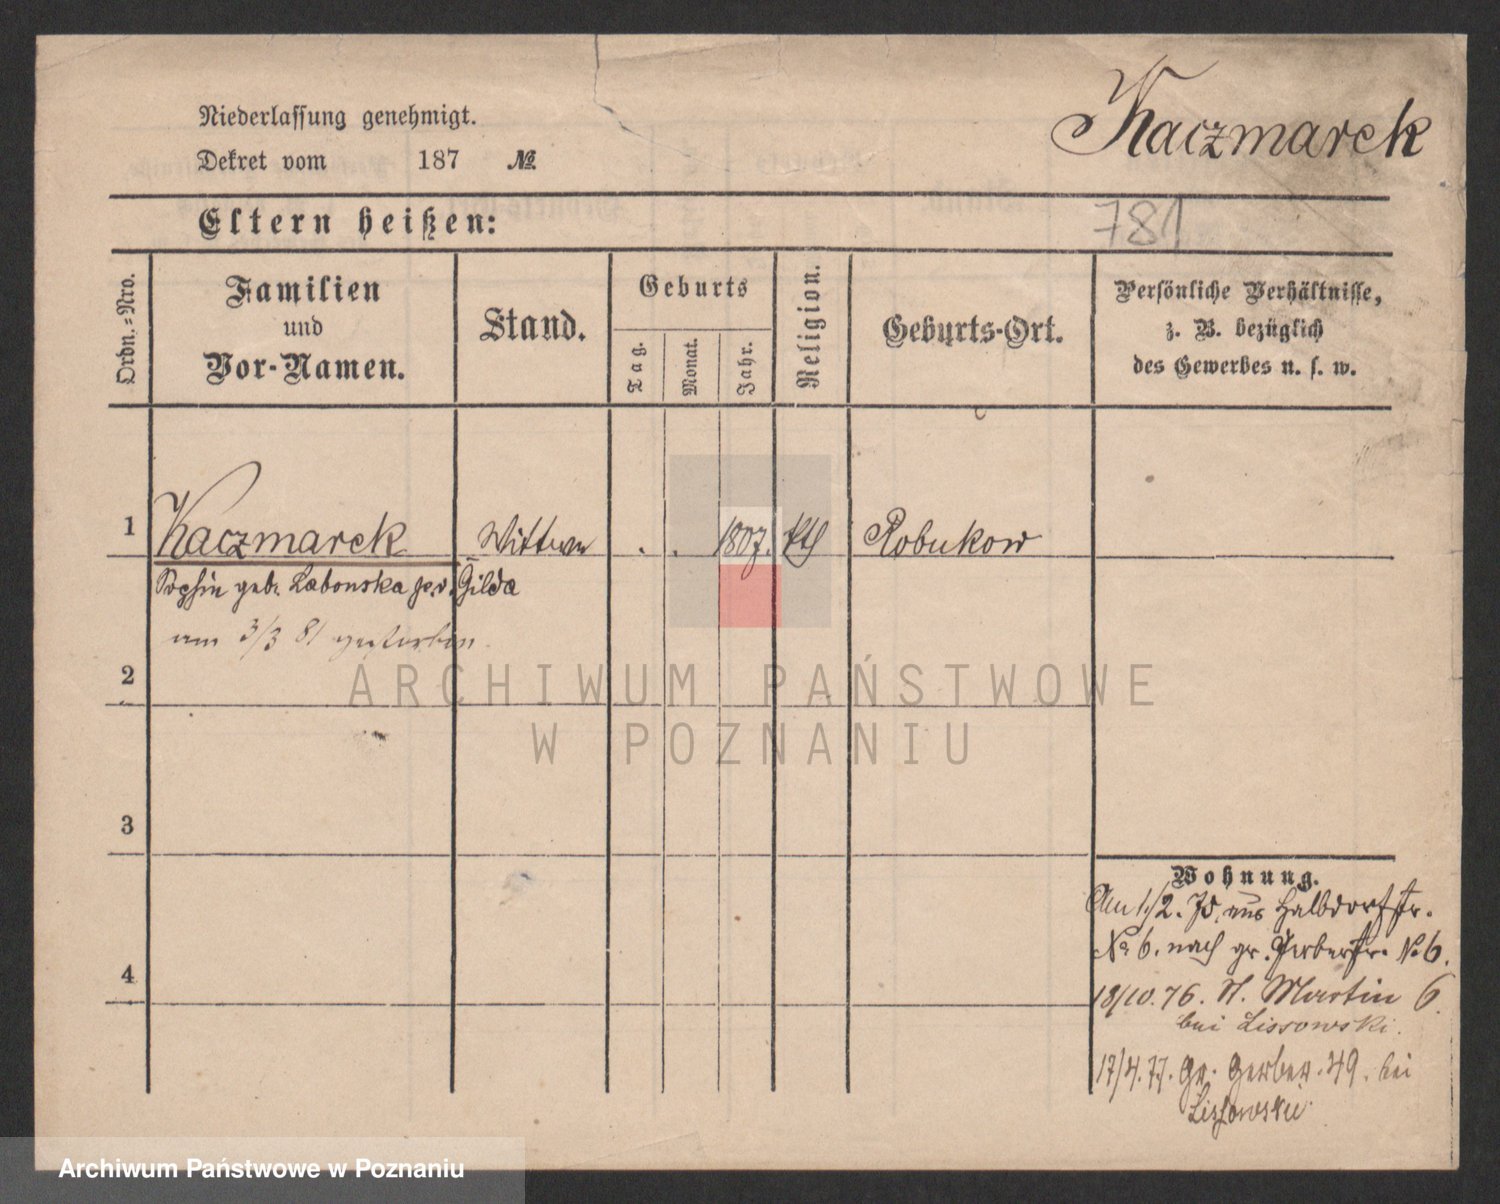 Niederlassung genehmigt.
Dekret vom 187 №
Kaczmarek
Eltern heißen:
781
Ordn.=Nro.
Familien
und
Vor-Namen.
Stand.
Geburts
Tag.
Monat.
Jahr.
Religion.
Geburts-Ort.
Persönliche Verhältnisse,
z. B. bezüglich
des Gewerbes u. s. w.
1 Kaczmarek Wittwe . . 1807. kth Robukow
Sophie geb. Labonska Gilda
am 3/3 81 gestorben.
2
3
4
Wohnung.
Am 1./2. aus Halbdorfstr.
No 6. nach gr. Gerberstr. No 6.
18/10. 76. St. Martin 6
bei Lissowski.
17/4. 77. Gr. Gerber. 49. bei
Lissowski
ARCHIWUM PAŃSTWOWE
W POZNANIU
Archiwum Państwowe w Poznaniu